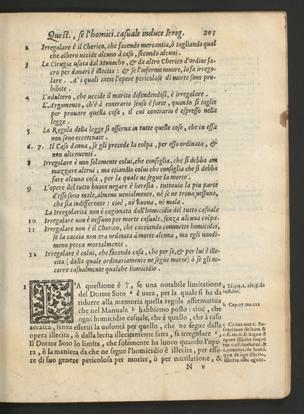 Quest. , se l'homici. casuale induce Irreg. 201
2 Irregolare è il Cherico, che facendo mercantia, ò tagliando qual
che albero uccide alcuno à caso, secondo alcuni.
3 La Cirugia usata dal Monacho, & da altro Cherico d'ordine sa-
cro per danari è illecita : & se l'infermo muore, lo fa irrego-
lare . A' i quali tutte l'opere pericolose di morte sono pro-
hibite .
4 L'adultero, che uccide il marito defendendosi, è irregolare .
5 L'Argomento, ch'è à contrario senso è forte, quanto si toglie
per prouare quella cosa, il cui contrario è espresso nella
legge .
5 La Regola della legge si osserua in tutte quelle cose, che in essa
non sono eccettuate .
6. 7. Il Caso danna, se gli precede la colpa, per esso ordinata, &
non altrimenti .
8 Irregolare è non solamente colui, che consiglia, che si debba am
mazzare altrui, ma etiandio colui che consiglia che si debba
fare alcuna cosa, per la quale ne segua la morte .
9 L'opere del tutto buone negare è heresia . tuttauia la piu parte
d'esse sono male, almeno uenialmente, nè ui ne è una nessuna,
che sia indifferente : cioè, nè buona, nè mala .
La Irregolarità non è cagionata dall'homicidio del tutto casuale
10 Irregolare non è nessuno per morte casuale, senza alcuna colpa.
11 Irregolare non è il Cherico, che cacciando commette homicidio,
se la caccia non era ordinata à morte alcuna, ma egli nondi-
meno pecca mortalmente .
12 Irregolare è colui, che facendo cosa, che per se, & per lui è ille-
cita ( dalla quale ordinariamente ne segue morte) ò se gli oc-
corre casualmente qualche homicidio .
1 LA questione è , se una notabile limitatione
del Dottor Soto è uera, per la quale si ha da
ridurre alla memoria quella regola affermatiua
che nel Manuale habbiamo posto : cioè, che
ogni homicidio casuale, che è quello, che à caso
accasca, s'intende esserli la uolontà per quello, che ne segue dalla
opera illecita, ò dalla lecita illecitamente fatta, fa irregolare .
Il Dottor Soto lo limita, che solamente ha luoco quando l'ope-
ra, ò la maniera da che ne segue l'homicidio è illecita, per es-
sere di suo genere pericolosa per morire, ò per mutilatione, &
N v